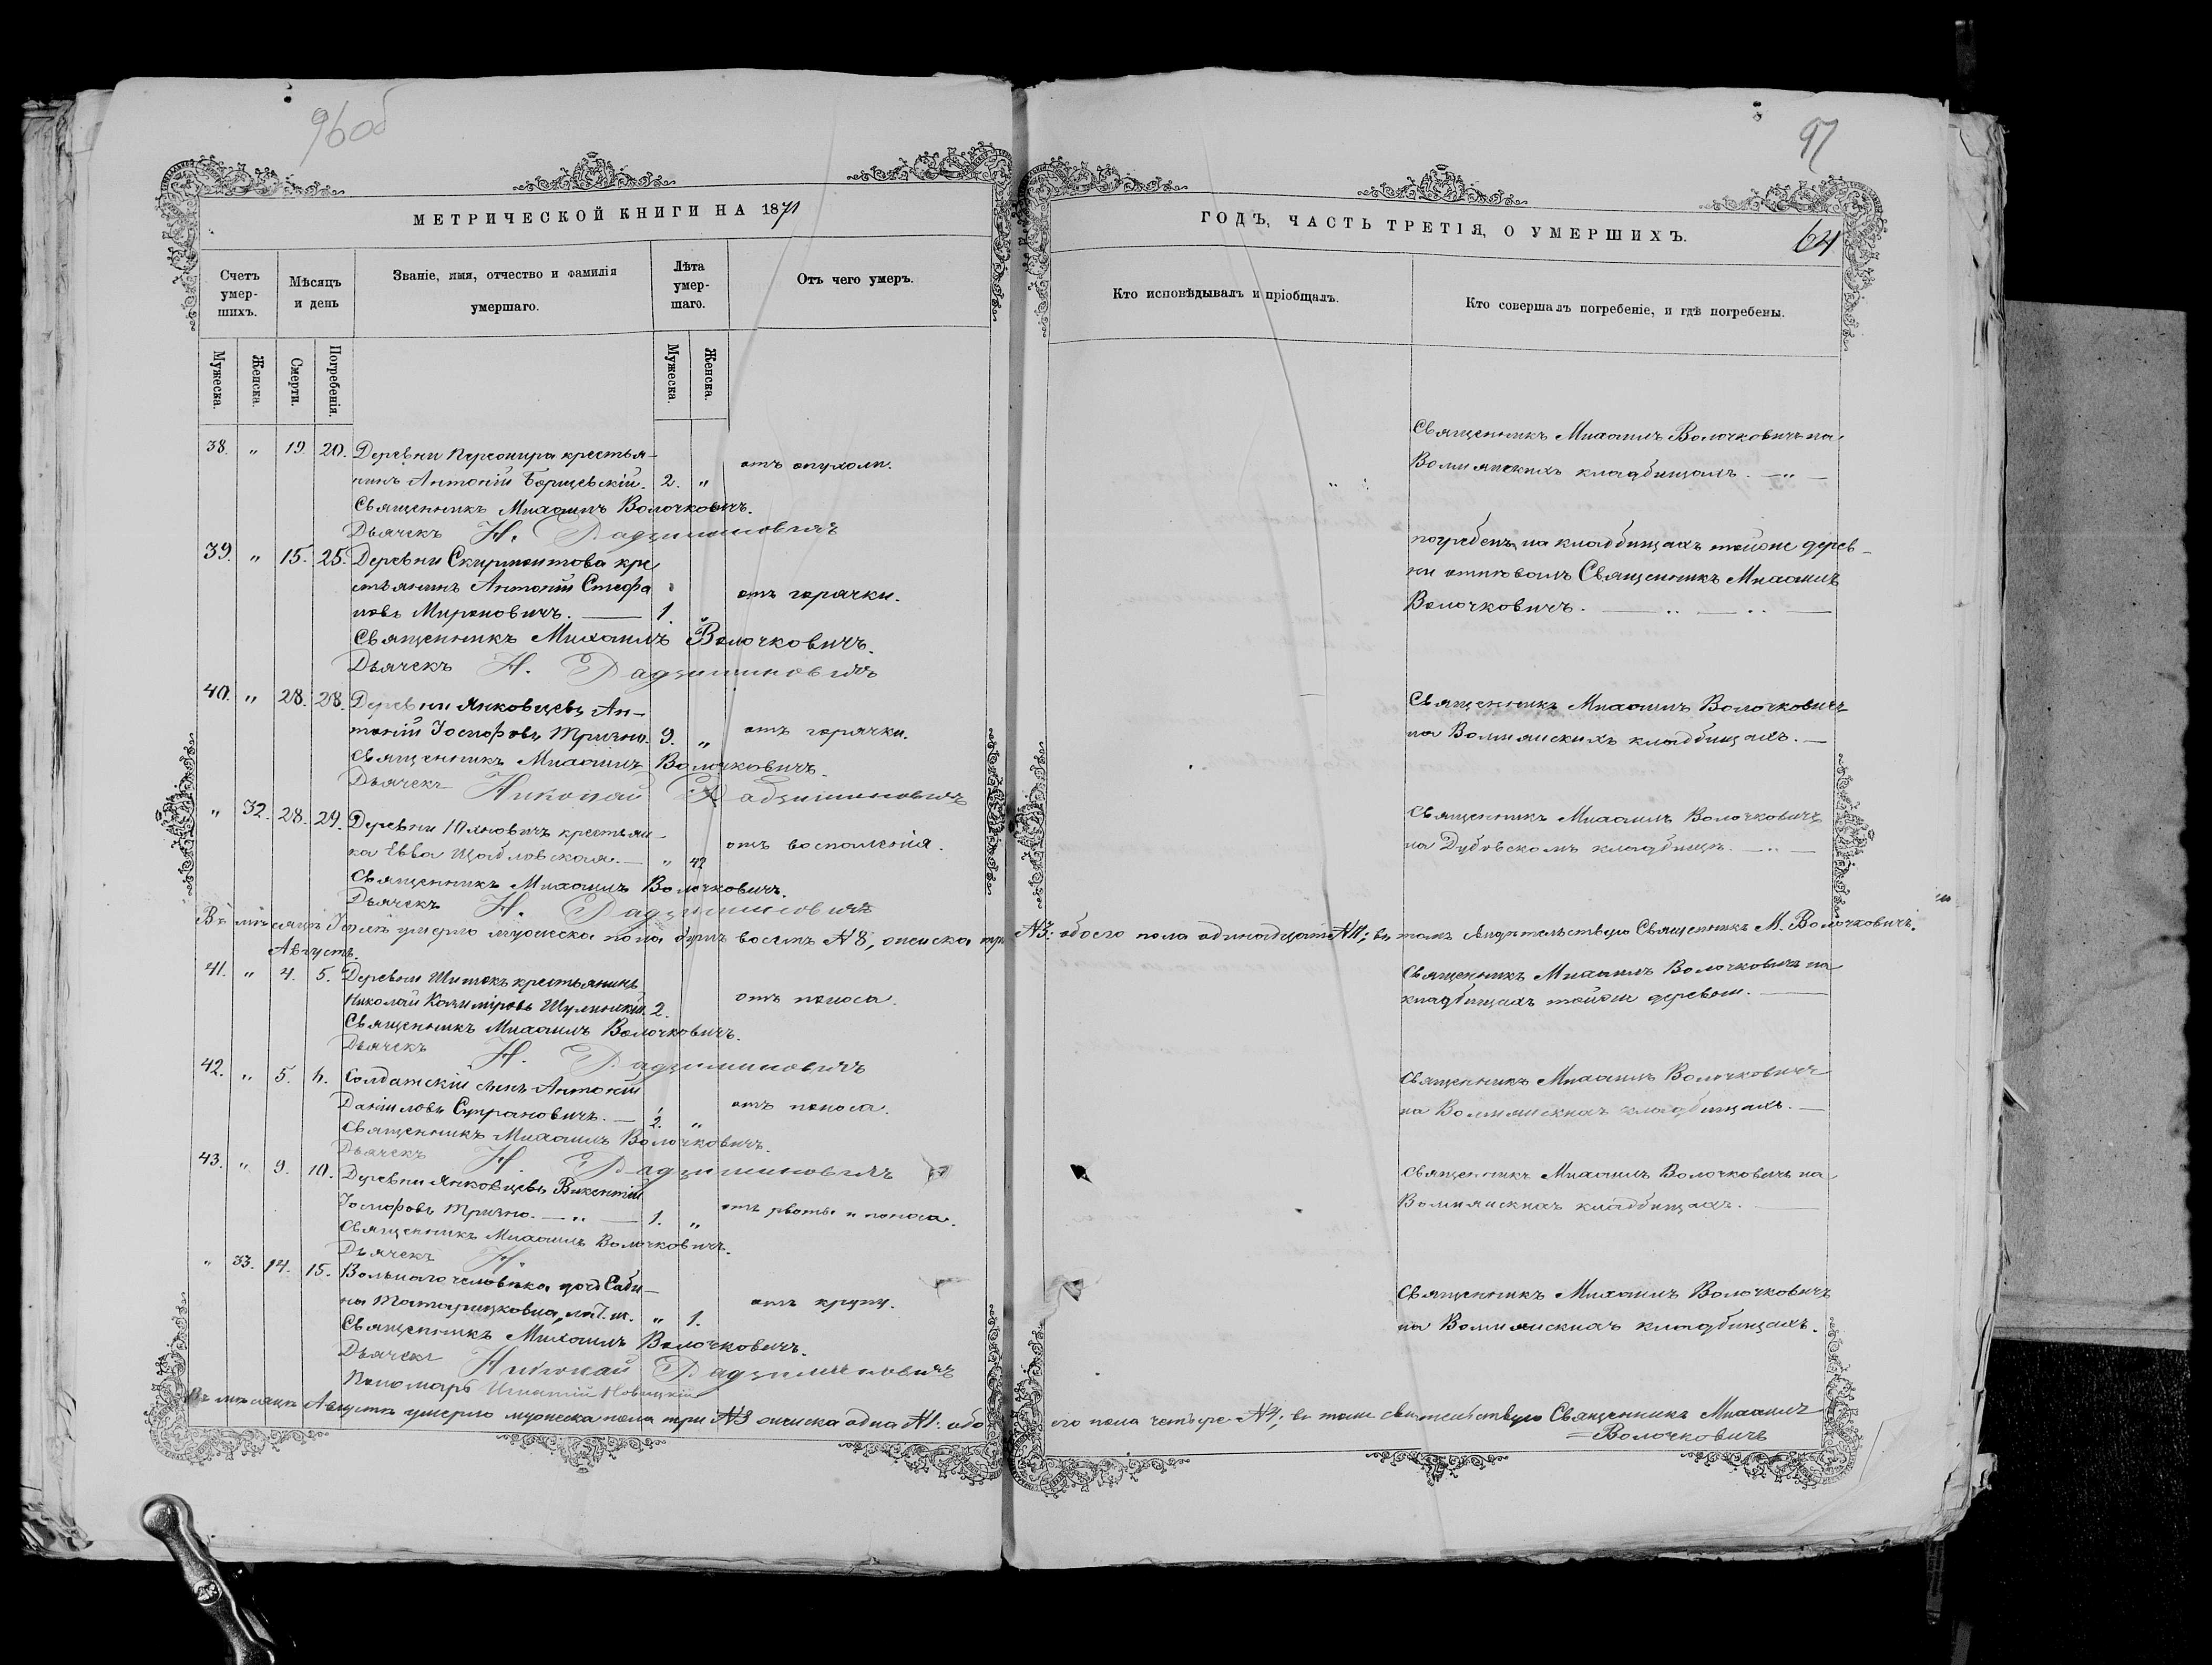 96об
97
МЕТРИЧЕСКОЙ КНИГИ НА 1871
ГОДЪ, ЧАСТЬ ТРЕТІЯ, О УМЕРШИХЪ.
64
Счетъ умер-шихъ.
Мѣсяцъ и день
Званіе, имя, отчество и фамилія умершаго.
Лѣта умер-шаго.
Отъ чего умеръ.
Кто исповѣдывалъ и пріобщалъ.
Кто совершалъ погребеніе, и гдѣ погребены.
Мужеска.
Женска.
Смерти.
Погребенія.
Мужеска.
Женска.
38. " 19. 20. Деревни крестья-
нинъ Антоній Борщевскій. 2. " отъ опухоли.
Священникъ Михаилъ Волочковичъ.
Дьячекъ Н. Радзиминовичъ
Священникъ Михаилъ Волочковичъ на
Волмянскихъ кладбищахъ. — " —
39. " 15. 25. Деревни Скирмонтова кре
стьянинъ Антоній Стефа
новъ Мироновичъ. — 1. " отъ горячки.
Священникъ Михаилъ Волочковичъ.
Дьячекъ Н. Радзиминовичъ
погребенъ на кладбищахъ тойже дерев-
ни отпѣвалъ Священникъ Михаилъ
Волочковичъ. — .. — .. —
40. " 28. 28. Деревни Янковцевъ Ан-
тоній Іосифовъ Тризно. 9. " отъ горячки.
Священникъ Михаилъ Волочковичъ.
Дьячекъ Николай Радзиминовичъ
Священникъ Михаилъ Волочковичъ
на Волмянскихъ кладбищахъ. —
" 32. 28. 29. Деревни Юхновичъ крестьян-
ка Евва Щабловская. — " 42 отъ воспаленія.
Священникъ Михаилъ Волочковичъ.
Дьячекъ Н. Радзиминовичъ
Священникъ Михаилъ Волочковичъ
на Дубовскомъ кладбищѣ. — .. —
Въ мѣсяцѣ Іюлѣ умерло мужеска пола душъ восемь №8, женска три №3: обоего пола одинадцать №11; въ томъ свидѣтельствую Священникъ М. Волочковичъ.
Августъ.
41. " 4. 5. Деревни Шитокъ крестьянинъ
Николай Казиміровъ 2. отъ поноса.
Священникъ Михаилъ Волочковичъ.
Дьячекъ Н. Радзиминовичъ
Священникъ Михаилъ Волочковичъ на
кладбищахъ тойже деревни. —
42. " 5. 6. Солдатскій сынъ Антоній
Даніиловъ Супрановичъ. — 2. " отъ поноса.
Священникъ Михаилъ Волочковичъ.
Дьячекъ Н. Радзиминовичъ
Священникъ Михаилъ Волочковичъ
на Волмянскихъ кладбищахъ. —
43. " 9. 10. Деревни Янковцевъ Викентій
Іосифовъ Тризно. — " — 1. " отъ рвоты и поноса.
Священникъ Михаилъ Волочковичъ.
Дьячекъ Н.
Священникъ Михаилъ Волочковичъ на
Волмянскихъ кладбищахъ. —
" 33. 14. 15. Вольнаго человѣка дочь Саби-
на " 1. отъ крупу.
Священникъ Михаилъ Волочковичъ.
Дьячекъ Николай Радзиминовичъ
Пономарь Игнатій Новицкій
Священникъ Михаилъ Волочковичъ
на Волмянскихъ кладбищахъ.
Въ мѣсяцѣ Августѣ умерло мужеска пола три №3 женска одна №1: обо
его пола четыре №4; въ томъ свидѣтельствую Священникъ Михаилъ
Волочковичъ